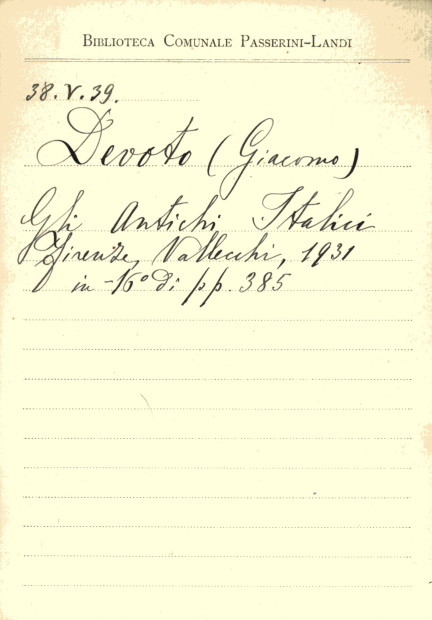 BIBLIOTECA COMUNALE PASSERINI-LANDI
38.V.39.
Devoto (Giacomo)
Gli Antichi Italici
Firenze, Vallecchi, 1931
in -16° di pp. 385